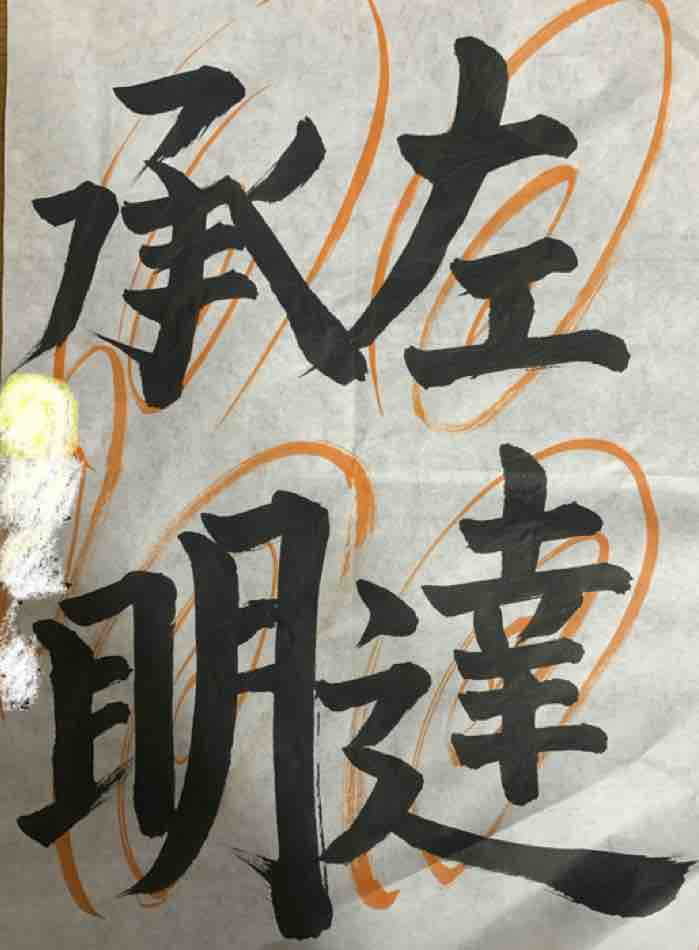 左達
承明